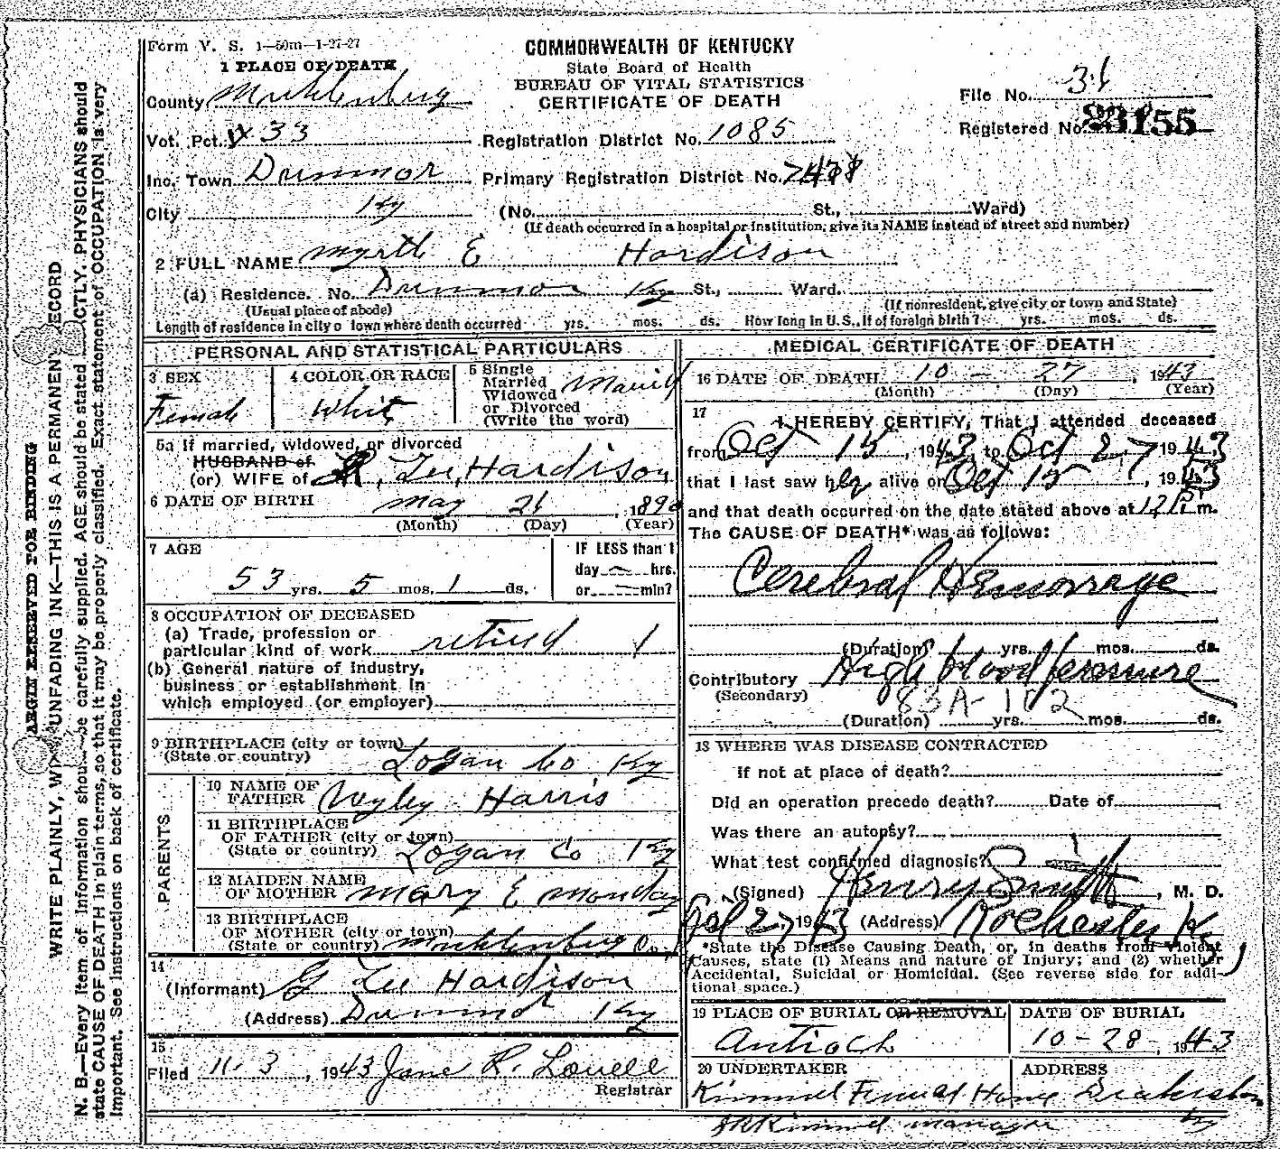 Form V. S. 1—50m—1-27-27
COMMONWEALTH OF KENTUCKY
State Board of Health
BUREAU OF VITAL STATISTICS
CERTIFICATE OF DEATH
File No. 31
Registered No. 23155
1 PLACE OF DEATH
County Muhlenburg
Vot. Pct. 33
Registration District No. 1085
Inc. Town Dunmor
Primary Registration District No. 7478
City Ky
(No. St., Ward)
(If death occurred in a hospital or institution, give its NAME instead of street and number)
2 FULL NAME Myrtle E Hardison
(a) Residence. No. Dunmor Ky St., Ward.
(Usual place of abode)
(If nonresident, give city or town and State)
Length of residence in city o town where death occurred yrs. mos. ds. How long in U.S., if of foreign birth? yrs. mos. ds.
PERSONAL AND STATISTICAL PARTICULARS
3 SEX
Female
4 COLOR OR RACE
White
5 Single
Married
Widowed
or Divorced
(Write the word)
Married
5a If married, widowed, or divorced
HUSBAND of
(or) WIFE of G. Lee Hardison
6 DATE OF BIRTH May 26, 1890
(Month) (Day) (Year)
7 AGE
53 yrs. 5 mos. 1 ds.
IF LESS than 1
day — hrs.
or — min?
8 OCCUPATION OF DECEASED
(a) Trade, profession or
particular kind of work retired 1
(b) General nature of industry,
business or establishment in
which employed (or employer)
9 BIRTHPLACE (city or town)
(State or country) Logan Co Ky
PARENTS
10 NAME OF
FATHER Wyley Harris
11 BIRTHPLACE
OF FATHER (city or town)
(State or country) Logan Co Ky
12 MAIDEN NAME
OF MOTHER Mary E Monday
13 BIRTHPLACE
OF MOTHER (city or town)
(State or country) Muhlenburg Co.
14
(Informant) G Lee Hardison
(Address) Dunmor Ky
15
Filed 11-3, 1943 Jane R. Lovell
Registrar
MEDICAL CERTIFICATE OF DEATH
16 DATE OF DEATH 10 — 27, 1943
(Month) (Day) (Year)
17
I HEREBY CERTIFY, That I attended deceased
from Oct 15, 1943, to Oct 27, 1943,
that I last saw her alive on Oct 15, 1943
and that death occurred on the date stated above at 12 P. m.
The CAUSE OF DEATH* was as follows:
Cerebral Hemorrage
(Duration) yrs. mos. ds.
Contributory High blood pressure
(Secondary)
83A-102
(Duration) yrs. mos. ds.
18 WHERE WAS DISEASE CONTRACTED
if not at place of death?
Did an operation precede death? Date of
Was there an autopsy?
What test confirmed diagnosis?
(Signed) Henry Smith, M. D.
Oct 27 1943 (Address) Rochester Ky
*State the Disease Causing Death, or, in deaths from Violent
Causes, state (1) Means and nature of Injury; and (2) whether
Accidental, Suicidal or Homicidal. (See reverse side for addi-
tional space.)
19 PLACE OF BURIAL OR REMOVAL
Antioch
DATE OF BURIAL
10-28, 1943
20 UNDERTAKER
Kimmel Funeral Home
ADDRESS
Ky
Kimmel manager
ARGIN RESERVED FOR BINDING
WRITE PLAINLY, WI UNFADING INK—THIS IS A PERMANEN ECORD
N. B.—Every item of information shou be carefully supplied. AGE should be stated CTLY. PHYSICIANS should
state CAUSE OF DEATH in plain terms, so that it may be properly classified. Exact statement of OCCUPATION is very
important. See instructions on back of certificate.